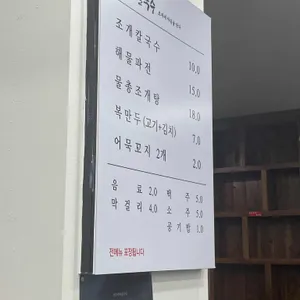 칼국수
조개칼국수 10.0
해물파전 15.0
물총조개탕 18.0
복만두(고기+김치) 7.0
어묵꼬지 2개 2.0
음료 2.0 맥주 5.0
막걸리 4.0 소주 5.0
공기밥 1.0
전메뉴 포장됩니다